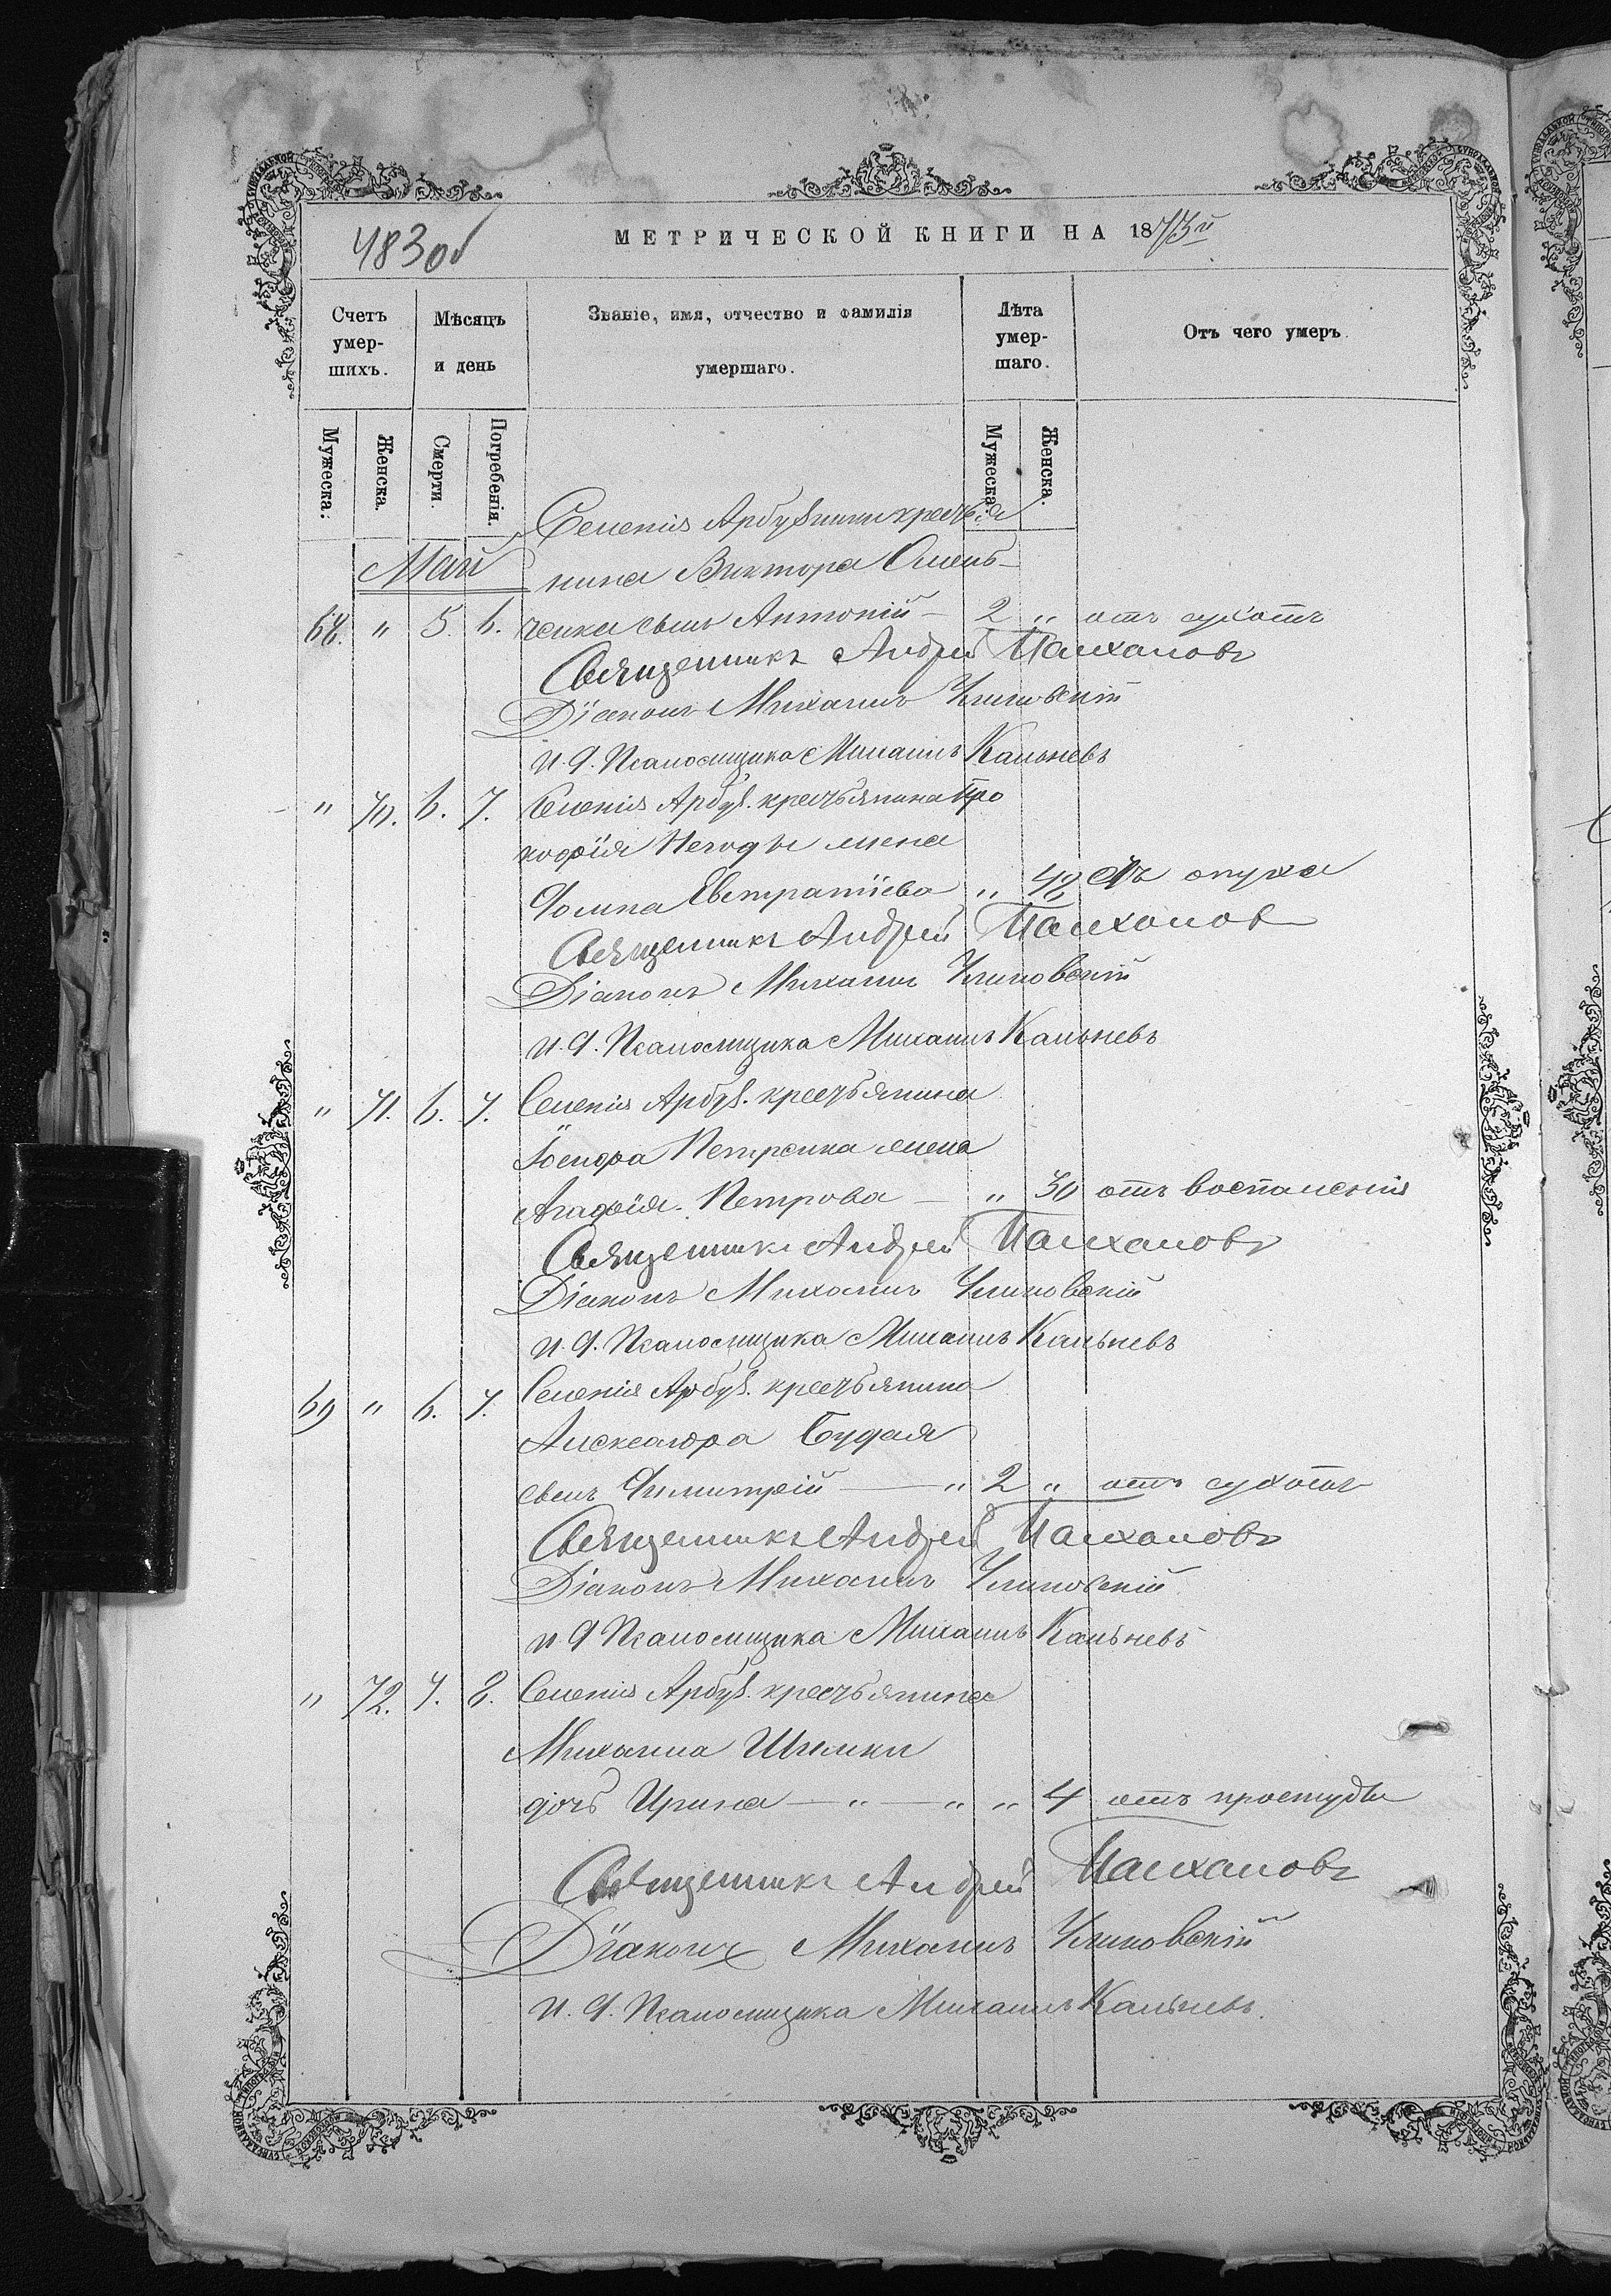 483 об
МЕТРИЧЕСКОЙ КНИГИ НА 1873й
Счетъ умер-шихъ.
Мѣсяцъ и день
Званіе, имя, отчество и фамилія умершаго.
Лѣта умер-шаго.
Отъ чего умеръ.
Мужеска.
Женска.
Смерти.
Погребенія.
Мужеска.
Женска.
Селенія Арбузинки крестья
Май
нина Виктора Омель-
68. " 5. 6. ченка сынъ Антоній - 2 " отъ сухотъ
Священникъ Андрей
Діаконъ Михаилъ
И. д. Псаломщика Михаилъ Кальневъ
" 70. 6. 7. Селенія Арбуз. крестьянина Про
кофія Негоды жена
Домна Евстратіева " 48 Отъ опуха
Священникъ Андрей
Діаконъ Михаилъ
И. д. Псаломщика Михаилъ Кальневъ
" 71. 6. 7. Селенія Арбуз. крестьянина
Ѳеодора Петренка жена
Агафія Петрова - " 30 отъ воспаленія
Священникъ Андрей
Діаконъ Михаилъ
И. д. Псаломщика Михаилъ Кальневъ
69 " 6. 7. Селенія Арбуз. крестьянина
Александра Будая
сынъ Димитрій - " 2 " отъ сухотъ
Священникъ Андрей
Діаконъ Михаилъ
И. д Псаломщика Михаилъ Кальневъ
" 72. 7. 8. Селенія Арбуз. крестьянина
Михаила Шимки
дочь Ирина - " - " " 4 отъ простуды
Священникъ Андрей
Діаконъ Михаилъ
И. д. Псаломщика Михаилъ Кальневъ.